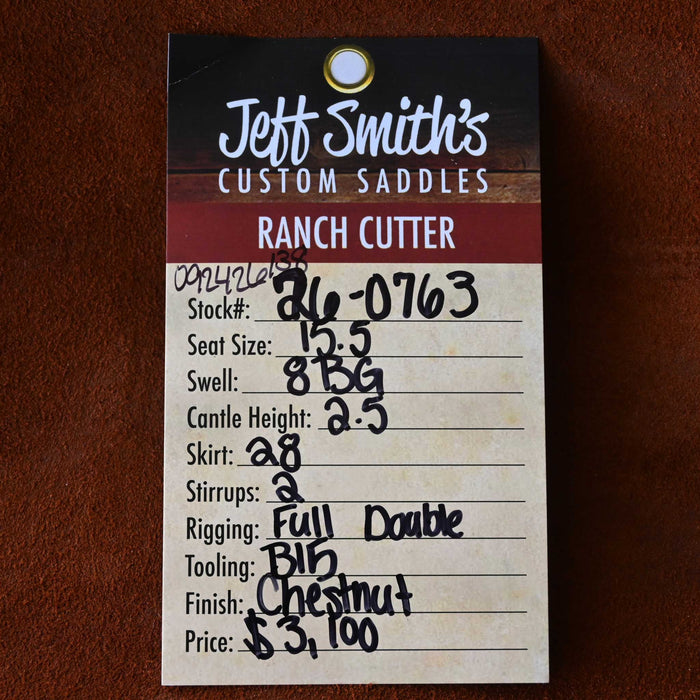 Jeff Smith's
CUSTOM SADDLES
RANCH CUTTER
092426138
Stock#: 26-0763
Seat Size: 15.5
Swell: 8 BG
Cantle Height: 2.5
Skirt: 28
Stirrups: 2
Rigging: Full Double
Tooling: B15
Finish: Chestnut
Price: $3,100